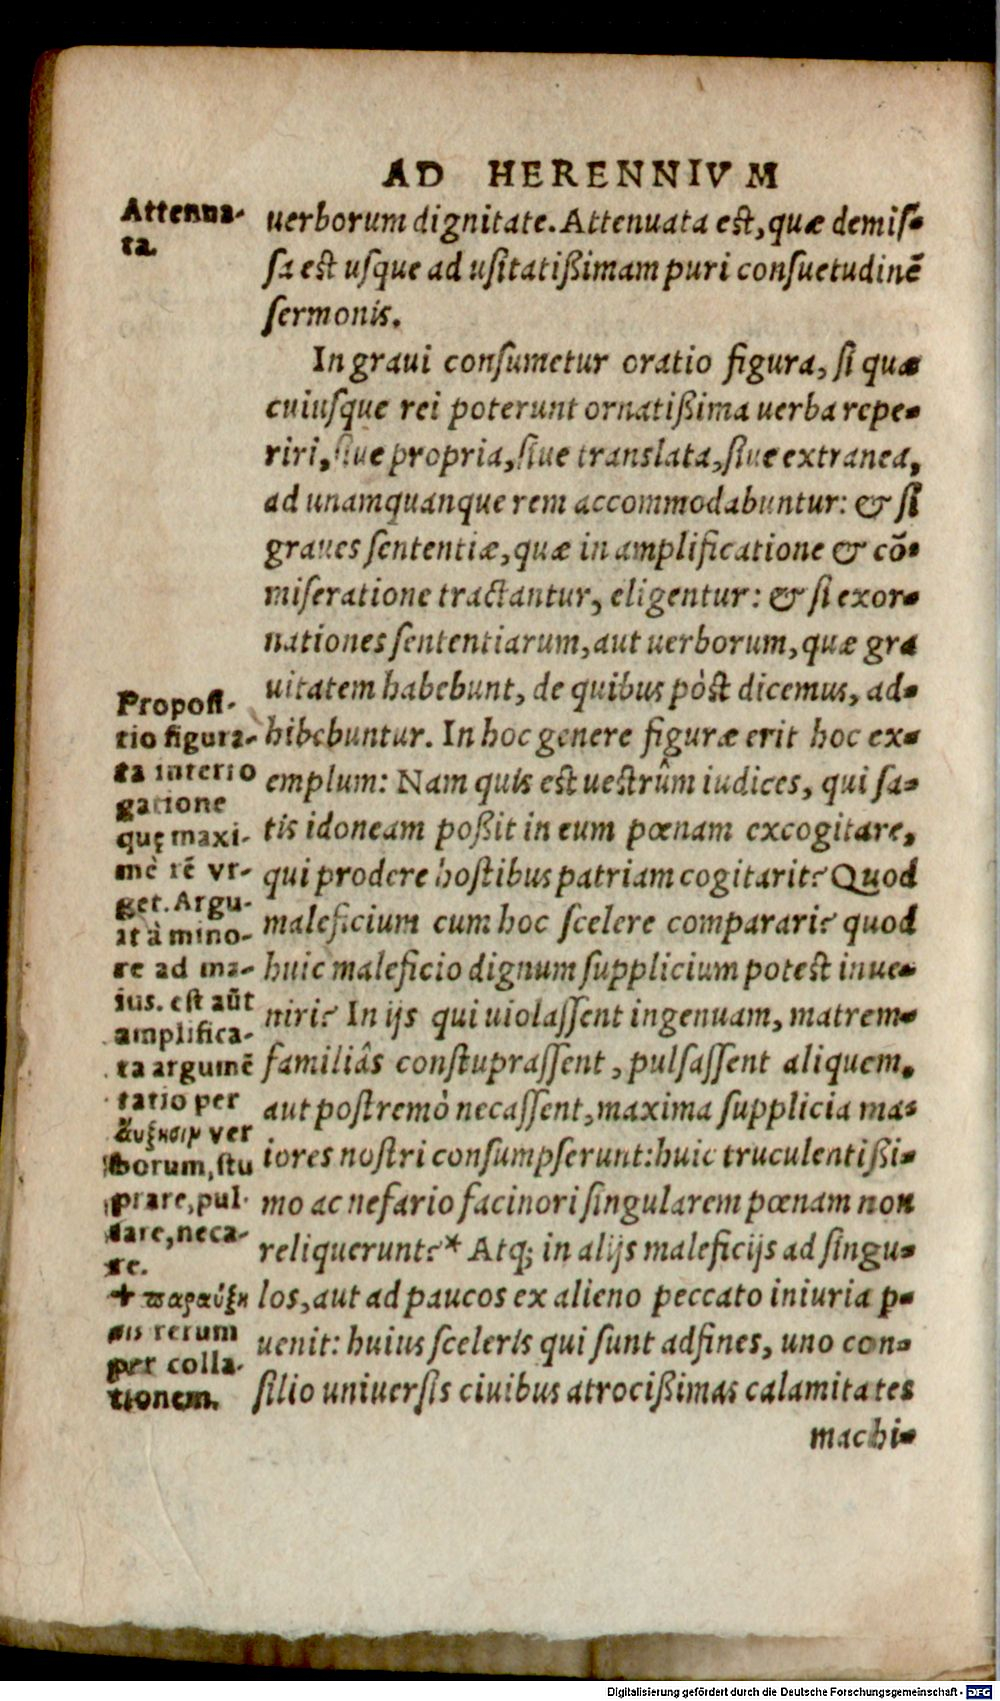 AD HERENNIVM
Attenua-
ta.
uerborum dignitate. Attenuata est, quæ demis-
sa est usque ad usitatißimam puri consuetudinē
sermonis.
In graui consumetur oratio figura, si quæ
cuiusque rei poterunt ornatißima uerba repe-
riri, siue propria, siue translata, siue extranea,
ad unamquanque rem accommodabuntur: & si
graues sententiæ, quæ in amplificatione & cō-
miseratione tractantur, eligentur: & si exor-
nationes sententiarum, aut uerborum, quæ gra
uitatem habebunt, de quibus pòst dicemus, ad-
hibebuntur. In hoc genere figuræ erit hoc ex-
emplum: Nam quis est uestrûm iudices, qui sa-
tis idoneam poßit in eum pœnam excogitare,
qui prodere hostibus patriam cogitarit? Quod
maleficium cum hoc scelere comparari? quod
huic maleficio dignum supplicium potest inue-
niri? In ijs qui uiolassent ingenuam, matrem-
familiâs constuprassent, pulsassent aliquem,
aut postremò necassent, maxima supplicia ma-
iores nostri consumpserunt: huic truculentißi-
mo ac nefario facinori singularem pœnam non
reliquerunt?* Atq; in alijs maleficijs ad singu-
los, aut ad paucos ex alieno peccato iniuria p-
uenit: huius sceleris qui sunt adfines, uno con-
silio uniuersis ciuibus atrocißimas calamitates
machi-
Proposi-
tio figura-
ta interro
gatione
quę maxi-
mè rē vr-
get. Argu-
it à mino-
re ad ma-
ius. est aūt
amplifica-
ta argumē
tatio per
ἄυξησιν ver
borum, stu
prare, pul-
sare, neca-
re.
+ παραύξη
sis rerum
per colla-
tionem.
Digitalisierung gefördert durch die Deutsche Forschungsgemeinschaft - DFG